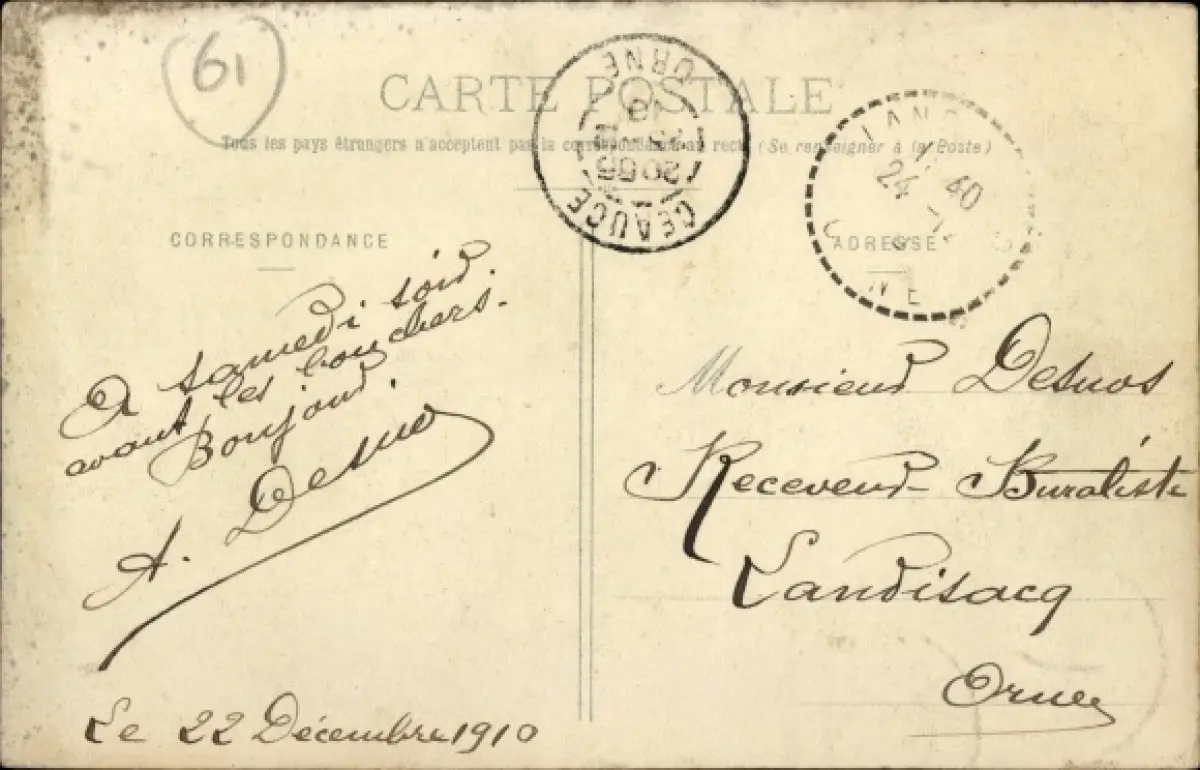 61
CARTE POSTALE
Tous les pays étrangers n'acceptent pas la correspondance au recto (Se renseigner à la Poste)
CORRESPONDANCE
A samedi soir
avant les bouchers.
Bonjour.
A. Desno
Le 22 Décembre 1910
CEAUCE
ORNE
24
40
NE
ADRESSE
Monsieur Desnos
Receveur Buraliste
Landisacq
Orne